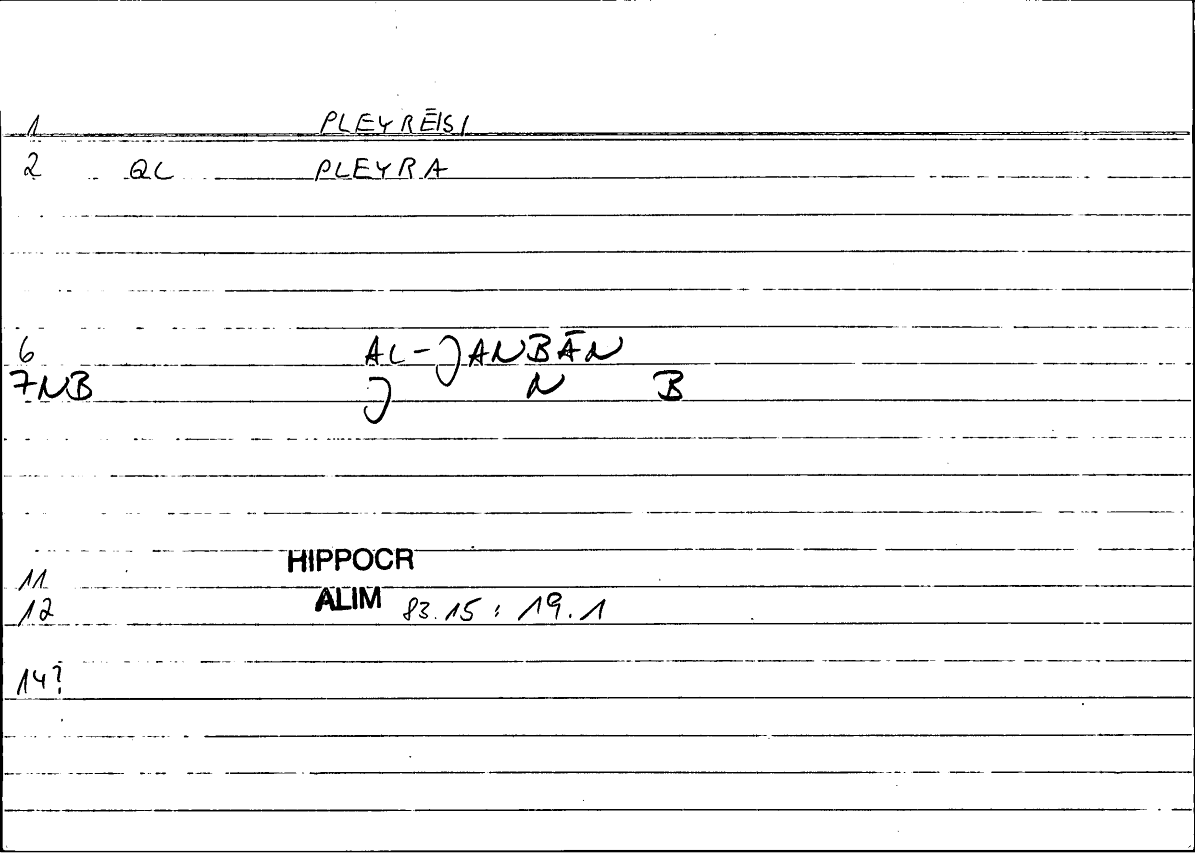 1 PLEYRĒISI
2 QL PLEYRA
6 AL-JANBĀN
7NB J N B
11 HIPPOCR
12 ALIM 83.15 : 19.1
14?